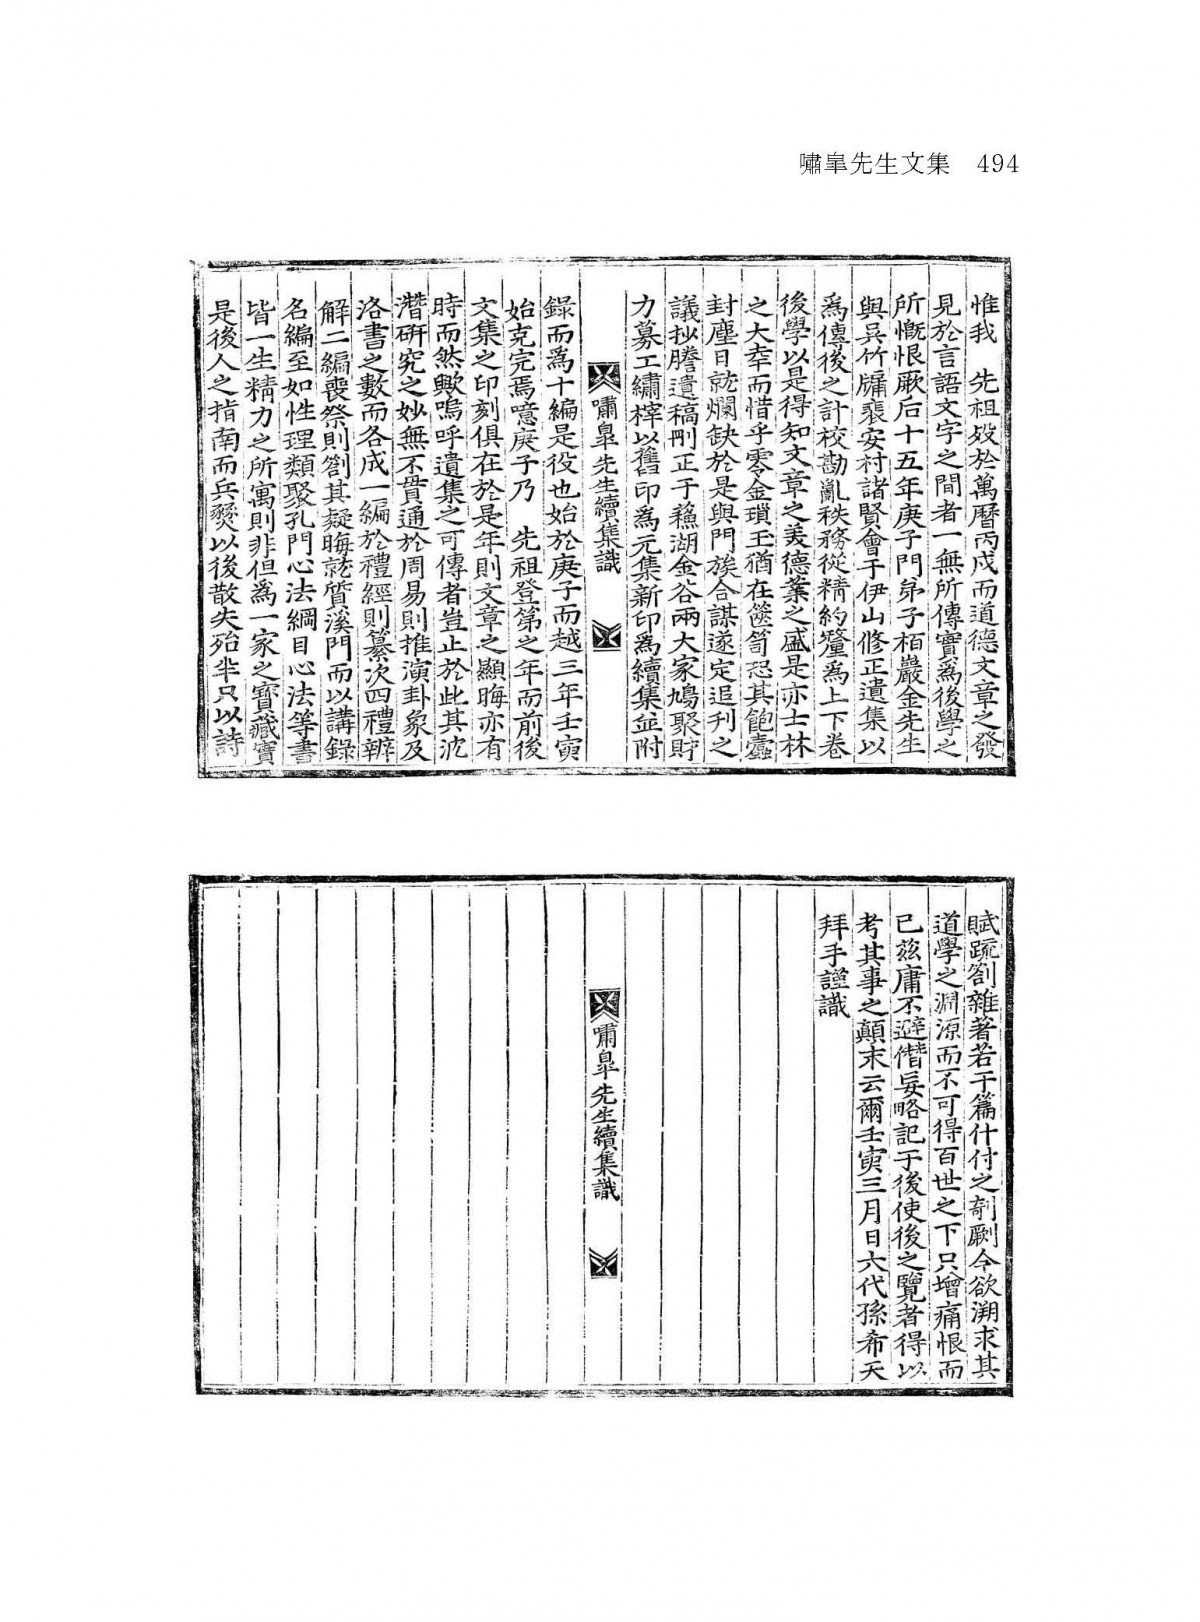 嘯皐先生文集 494
惟我 先祖歿於萬曆丙戌而道德文章之發
見於言語文字之間者一無所傳實爲後學之
所慨恨厥后十五年庚子門弟子栢巖金先生
與吳竹牖裵安村諸賢會于伊山修正遺集以
爲傳後之計校勘亂秩務從精約釐爲上下卷
後學以是得知文章之美德業之盛是亦士林
之大幸而惜乎零金瑣玉猶在篋笥恐其飽蠹
封塵日就爛缺於是與門族合謀遂定追刊之
議抄謄遺稿刪正于龝湖金谷兩大家鳩聚財
力募工繡梓以舊印爲元集新印爲續集並附
嘯皐先生續集識
錄而爲十編是役也始於庚子而越三年壬寅
始克完焉噫庚子乃 先祖登第之年而前後
文集之印刻俱在於是年則文章之顯晦亦有
時而然歟嗚呼遺集之可傳者豈止於此其沈
潛硏究之妙無不貫通於周易則推演卦象及
洛書之數而各成一編於禮經則纂次四禮辨
解二編喪祭則劄其疑晦就質溪門而以講錄
名編至如性理類聚孔門心法綱目心法等書
皆一生精力之所寓則非但爲一家之寶藏實
是後人之指南而兵燹以後散失殆半只以詩
賦疏劄雜著若干篇什付之剞劂今欲溯求其
道學之淵源而不可得百世之下只增痛恨而
已玆庸不避僭妄略記于後使後之覽者得以
考其事之顚末云爾壬寅三月日六代孫希天
拜手謹識
嘯皐先生續集識